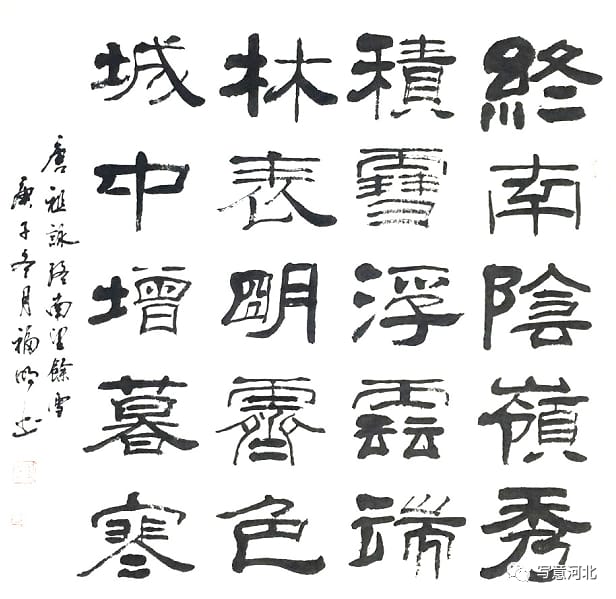 終南陰嶺秀
積雪浮雲端
林表明霽色
城中增暮寒
唐祖詠終南望餘雪
庚子冬月福明书
写意河北